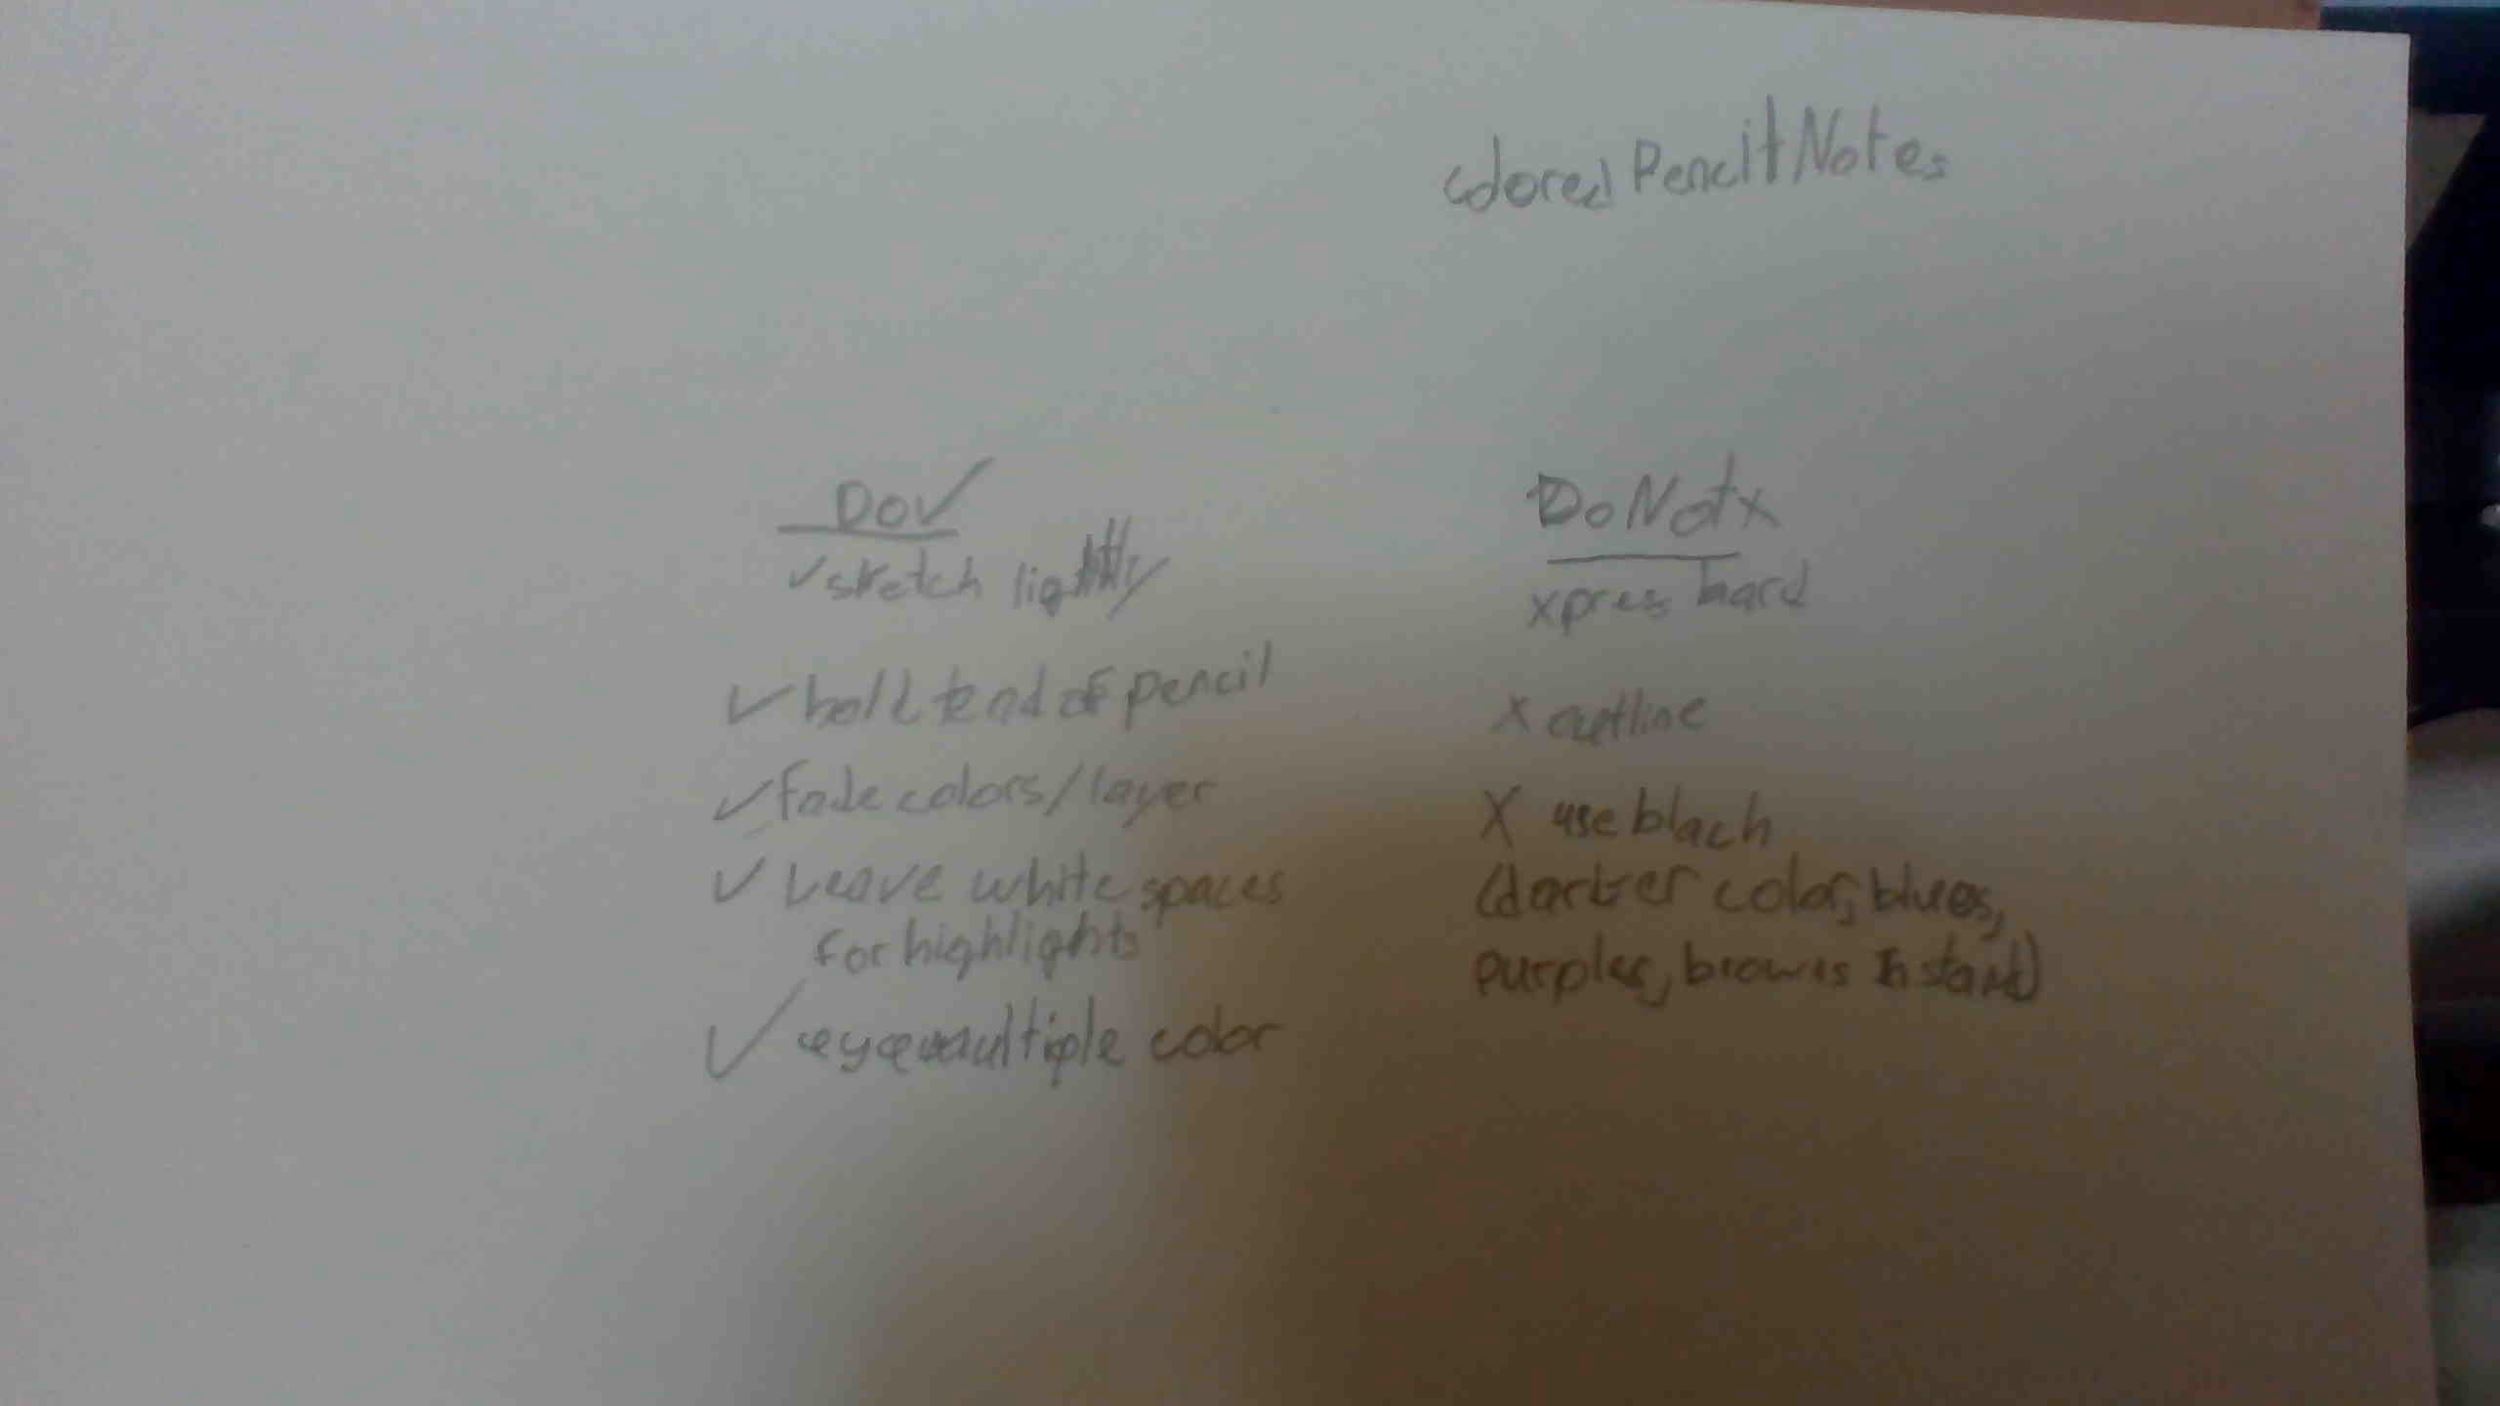 colored Pencil Notes
Do ✓
✓ sketch lightly
✓ hold end of pencil
✓ fade colors/layer
✓ Leave white spaces
for highlights
✓ multiple color
Do Not x
x press hard
x outline
X use black
(darker color, blues,
purples, browns